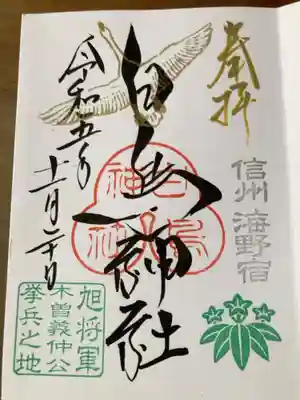 奉拝
信州 海野宿
白鳥神社
白鳥神社
令和五年
十一月二十日
旭将軍
木曽義仲公
挙兵之地